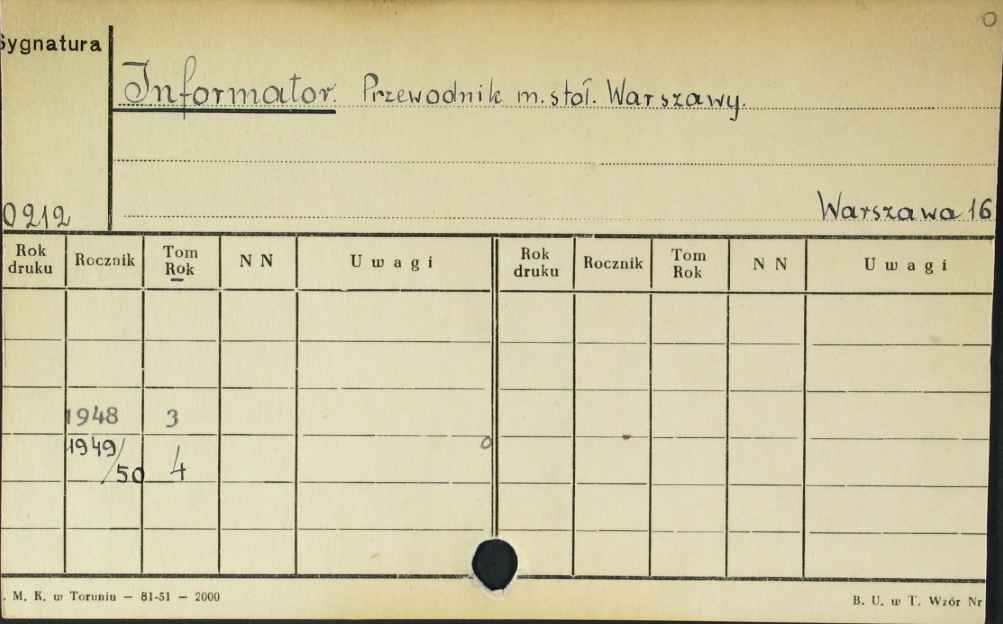 Sygnatura
Informator. Przewodnik m. stoł. Warszawy.
0212
Warszawa 16
Rok druku Rocznik Tom Rok N N Uwagi Rok druku Rocznik Tom Rok N N Uwagi
1948 3
1949/50 4
. M. K. w Toruniu — 81-51 — 2000
B. U. w T. Wzór Nr